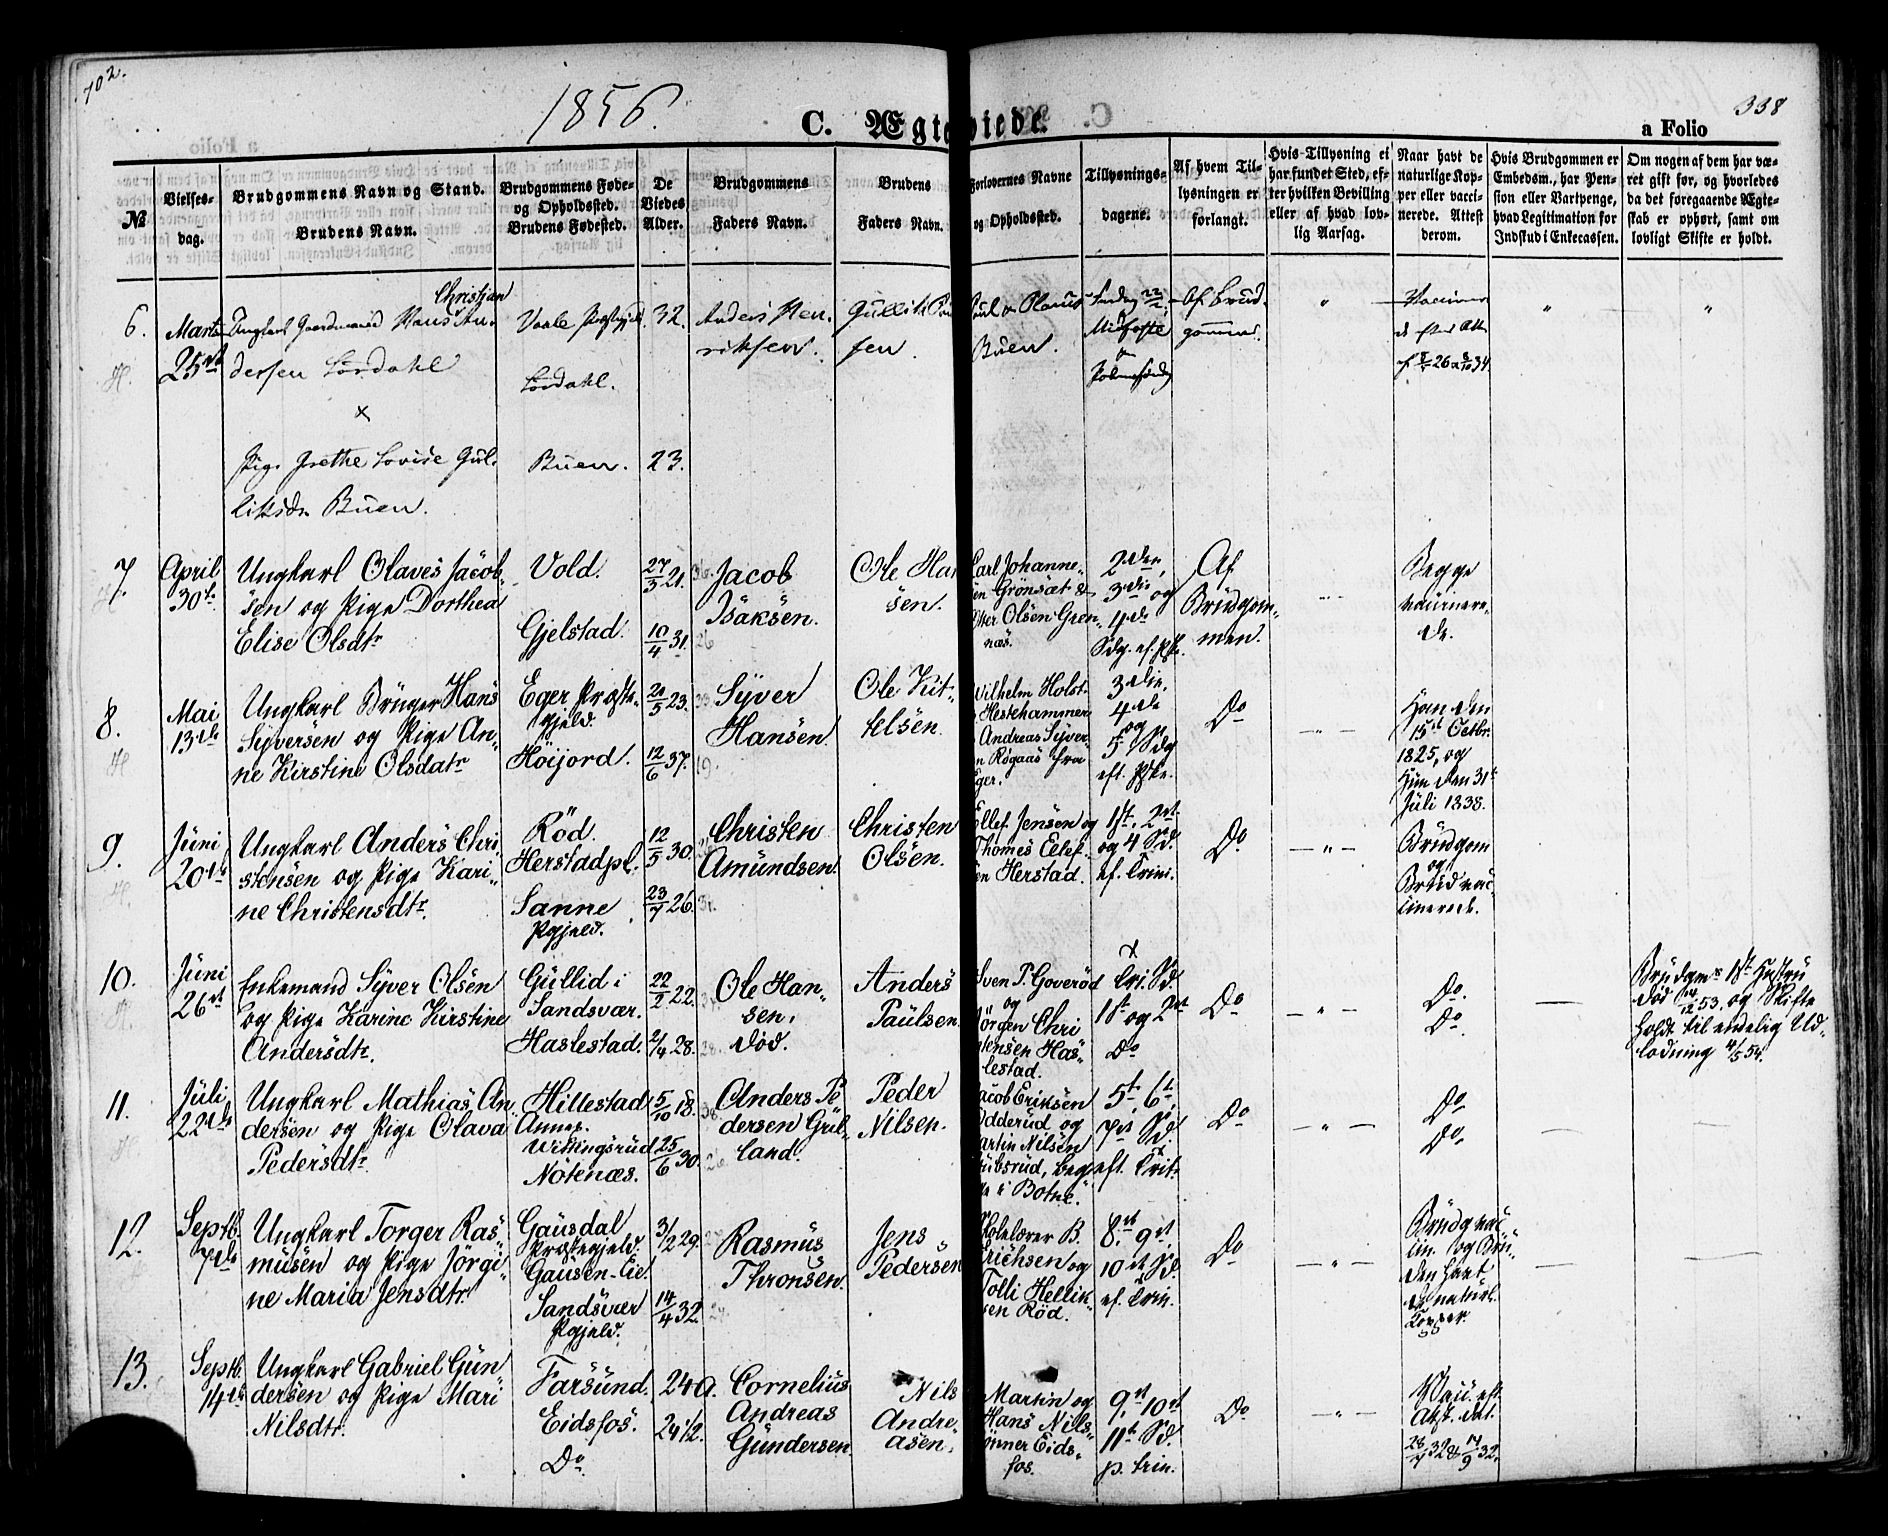 702.
1856.
C. Ægteviede.
338
a Folio
№
Vielses-
dag.
Brudgommens Navn og Stand.
Brudens Navn.
Brudgommens Føde-
og Opholdssted.
Brudens Fødested.
De
Viedes
Alder.
Brudgommens
Faders Navn.
Brudens
Faders Navn.
Forlovernes Navne
og Opholdssted.
Tillysnings-
dagene.
Af hvem Til-
lysningen er
forlangt.
Hvis Tillysning ei
har fundet Sted, ef-
ter hvilken Bevilling
eller af hvad lov-
lig Aarsag.
Naar havt de
naturlige Kop-
per eller vacci-
nerede. Attest
derom.
Hvis Brudgommen er
Embedsm., har Pen-
sion eller Vartpenge,
hvad Legitimation for
Indskud i Enkecassen.
Om nogen af dem har væ-
ret gift før, og hvorledes
da det foregaaende Ægte-
skab er ophørt, samt om
lovligt Skifte er holdt.
6.
Marts
25de
Christian
Ungkarl Gaardmand Hans An-
dersen Lørdahl
x
Pige Grethe Lovise Gul-
liksdr Buen.
Vaale Præstegjeld
Lørdahl.
Buen.
32.
23.
Anders Hen-
riksen.
Gullik
sen.
Buen.
Midfaste
Af Brud-
gommen.
7.
April
30te
Ungkarl Olaves Jacob-
sen og Pige Dorthea
Elise Olsdtr
Vold.
Gjelstad.
27/3 21.
10/4 31.
Jacob
Isaksen.
Ole Han
sen.
Carl Johanne-
sen Grönsæt &
Olsen Gren-
næs.
2den,
3die og
4de
Sdg. ef. Pske.
Af
Brudgom-
men.
Begge
vaccinere-
de.
8.
Mai
13de
Ungkarl Brüger Hans
Syversen og Pige An-
ne Kirstine Olsdatr
Eger Præste-
gjeld.
Höijord.
21/5 23.
12/6 37.
Syver
Hansen
Ole Kit-
telsen.
Wilhelm Holst
Hestehammer
Andreas Syver-
en Røgaas fra
Eger.
3die,
4de
og
5te Sdg
eft. Pske.
Do
Han den
15de Octbr.
1825, og
Hun den 31te
Juli 1838.
9.
Juni
20de
Ungkarl Anders Chri-
stensen og Pige Kari-
ne Christensdtr.
Röd.
Herstadpl.
Sanne
Pgjeld.
12/5 30.
23/7 26.
Christen
Amundsen.
Christen
Olsen.
Ellef Jensen og
Thomes Ellef-
en Herstad.
1st, 2det
og 4 Sd.
ef. Trini.
Do
Brudgom
og
Brud vac-
cinerede.
10.
Juni
26de
Enkemand Syver Olsen
og Pige Karine Kirstine
Andersdtr.
Gullid i
Sandsvær.
Haslestad.
22/2 22.
2/4 28.
Ole Han-
sen.
död.
Anders
Paulsen.
Sven P. Goveröd
og
Jörgen Chri
stensen Has-
lestad.
Tri. Sd.
1st og 2det
Do
Do
Do.
Do.
Brudgms 1st Hustru
död 53. og Skifte
holdt til endelig Ud-
lodning 4/5 54.
11.
Juli
22de
Ungkarl Mathias An-
dersen og Pige Olava
Pedersdtr.
Hillestad
Annex.
Wittingsrud
Nötenæs.
5/10 18.
25/6 30.
Anders Pe
dersen Gul-
land.
Peder
Nilsen.
Jacob Eriksen
Odderud og
Martin Nilsen
begge
i Botne.
5te, 6te,
7de Sd.
eft. Trit.
Do
Do
Do.
12.
Septb.
7de
Ungkarl Torger Ras-
musen og Pige Jörgi-
ne Maria Jensdtr.
Gausdal
Præstegjeld.
Gausen-Eie.
Sandsvær
Pgjeld.
3/2 29.
14/4 32.
Rasmus
Thronsen.
Jens
Pedersen
Skolelærer B.
Erichsen og
Tolli Hellik-
sen Röd.
8de, 9de,
10de Sd.
ef. Trin.
Do
Brudg vac-
cin. og Bru-
den havt
de naturl.
Kopper.
13.
Septb.
14de
Ungkarl Gabriel Gun-
dersen og Pige Mari
Nilsdtr.
Farsund.
Eidsfos.
Do
24 a.
24 1/2.
Cornelius
Andreas
Gundersen
Nils
Andre-
asen.
Martin og
Hans Nils-
sönner Eids-
fos.
9de, 10de
11te Sd.
p. Trin.
Do
Vacc. eft.
Att. dat.
28/7 32 & 14/9 32.